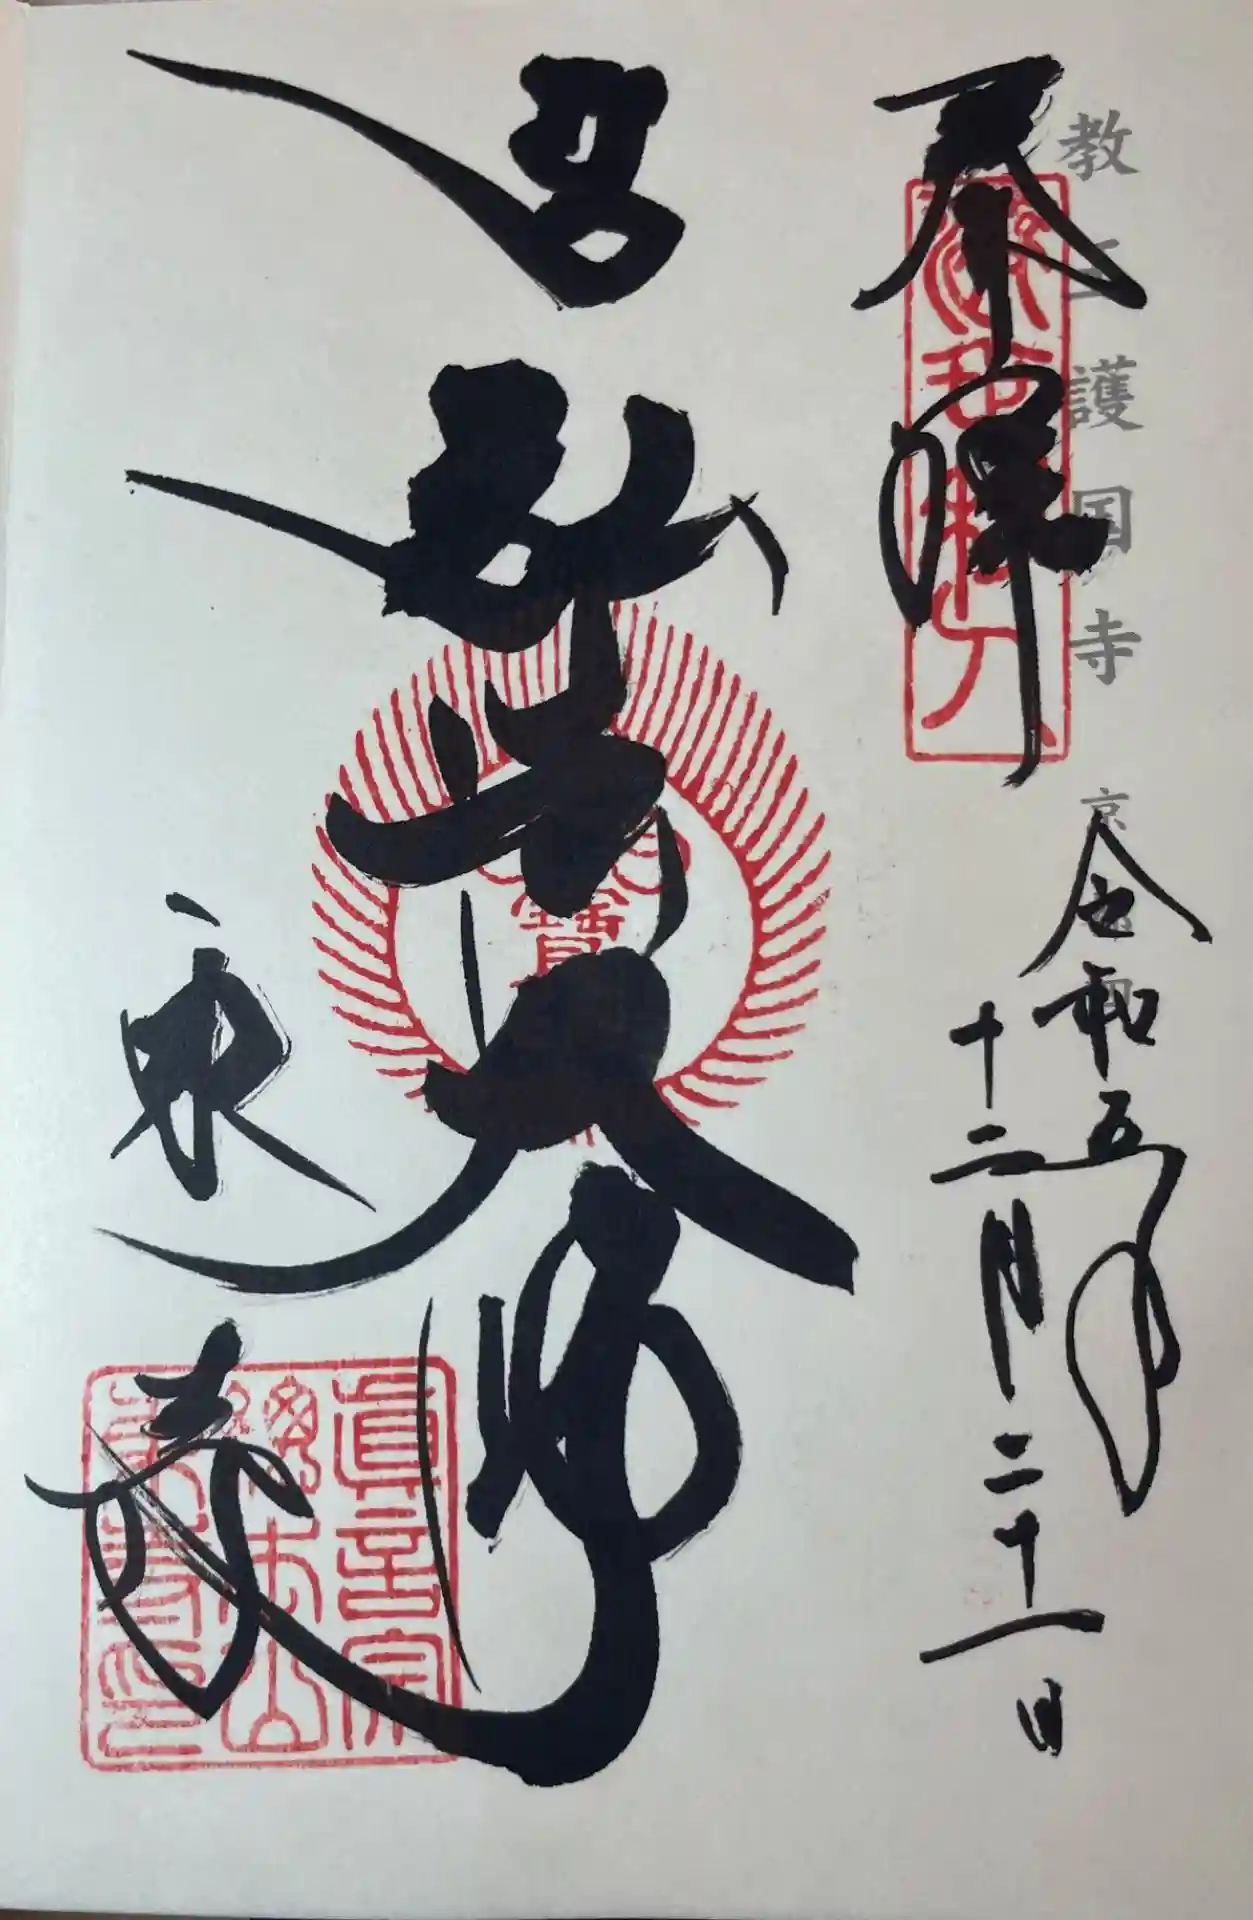 教王護国寺
奉拝
令和五年
十二月二十一日
弘法大師
東寺
真言宗
総本山
東寺印